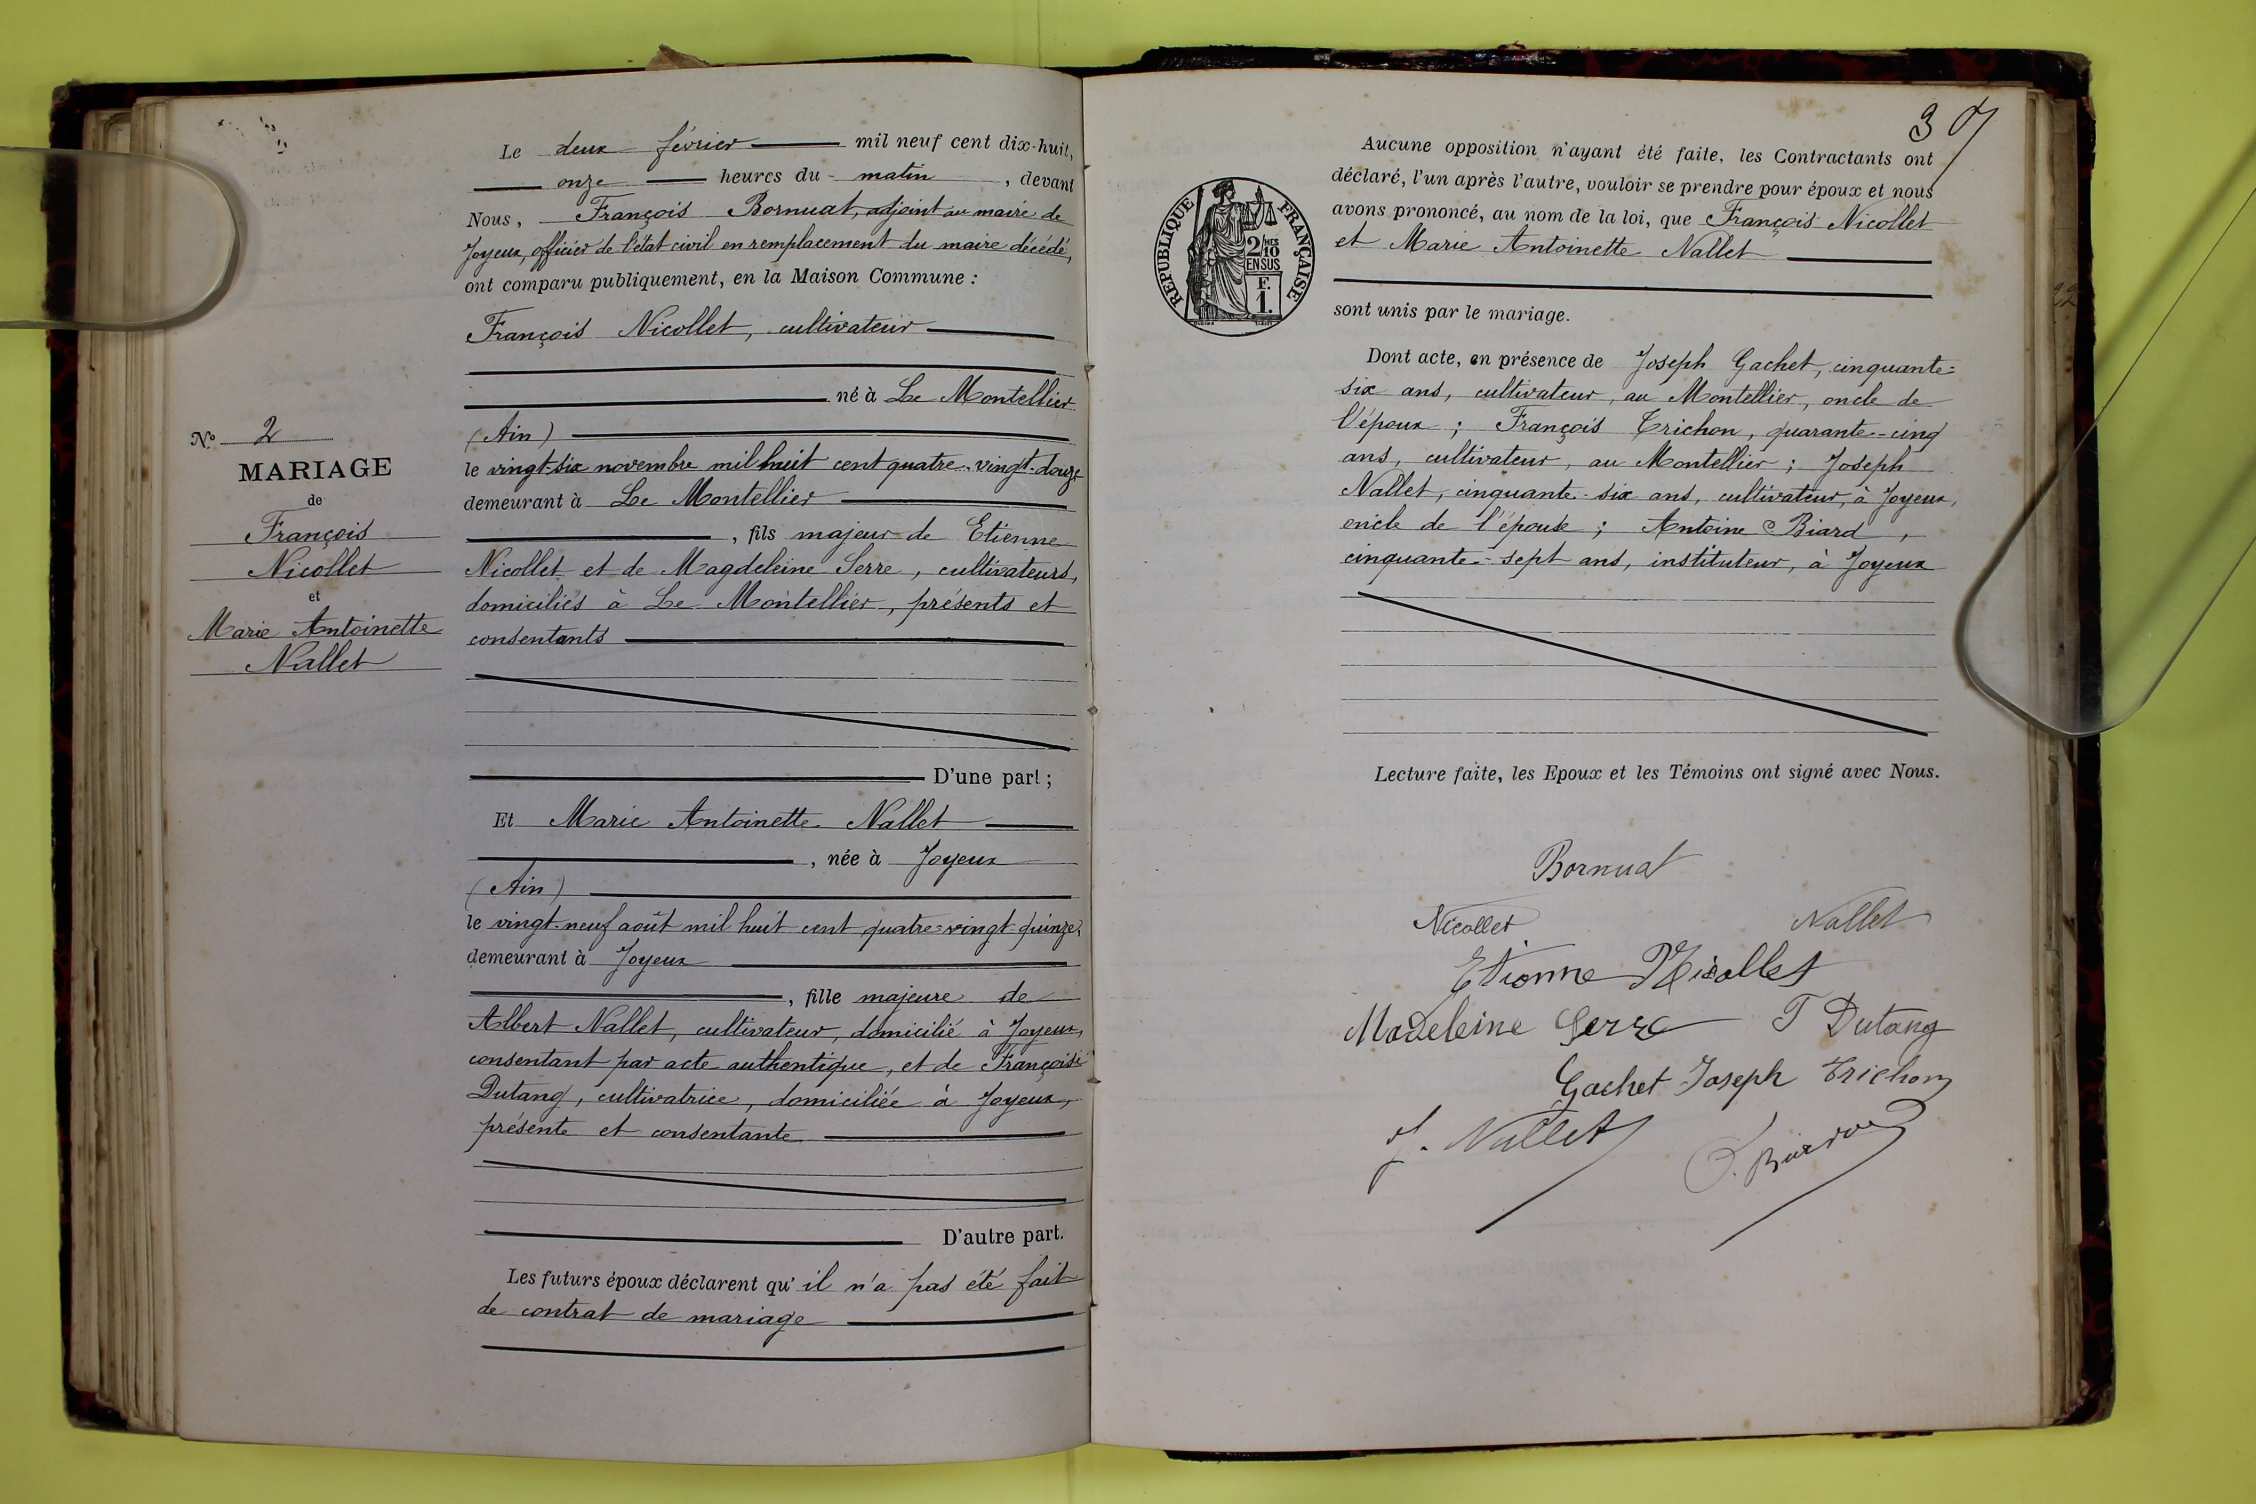 Le deux février mil neuf cent dix-huit,
onze heures du matin, devant
Nous, François Bornuat, adjoint au maire de
Joyeux, officier de l'état civil en remplacement du maire décédé,
ont comparu publiquement, en la Maison Commune :
François Nicollet, cultivateur
né à Le Montellier
(Ain)
le vingt-six novembre mil huit cent quatre-vingt-douze
demeurant à Le Montellier
, fils majeur de Etienne
Nicollet et de Magdeleine Serre, cultivateurs,
domiciliés à Le Montellier, présents et
consentants
D'une part ;
Et Marie Antoinette Nallet
, née à Joyeux
(Ain)
le vingt-neuf août mil huit cent quatre-vingt-quinze,
demeurant à Joyeux
, fille majeure de
Albert Nallet, cultivateur, domicilié à Joyeux,
consentant par acte authentique, et de Françoise
Dutang, cultivatrice, domiciliée à Joyeux,
présente et consentante
D'autre part.
Les futurs époux déclarent qu'il n'a pas été fait
de contrat de mariage
N° 2
MARIAGE
de
François
Nicollet
et
Marie Antoinette
Nallet
Aucune opposition n'ayant été faite, les Contractants ont
déclaré, l'un après l'autre, vouloir se prendre pour époux et nous
avons prononcé, au nom de la loi, que François Nicollet
et Marie Antoinette Nallet
sont unis par le mariage.
RÉPUBLIQUE FRANÇAISE
2/10MES
EN SUS
F.
1.
Dont acte, en présence de Joseph Gachet, cinquante-
six ans, cultivateur, au Montellier, oncle de
l'époux ; François Trichon, quarante-cinq
ans, cultivateur, au Montellier ; Joseph
Nallet, cinquante-six ans, cultivateur, à Joyeux,
oncle de l'épouse ; Antoine Biard,
cinquante-sept ans, instituteur, à Joyeux
Lecture faite, les Epoux et les Témoins ont signé avec Nous.
Bornuat
Nicollet Nallet
Etienne Nicollet
Madeleine Serre F Dutang
Gachet Joseph Trichon
J. Nallet